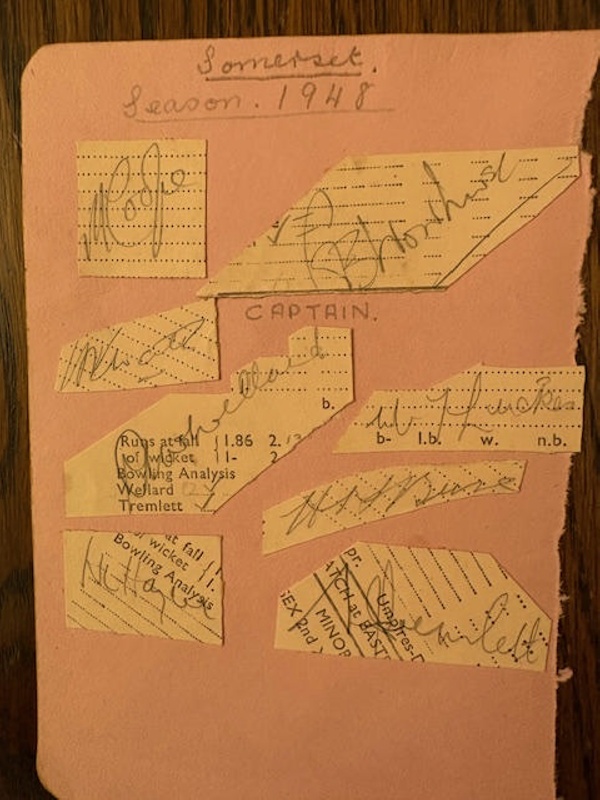 Somerset.
Season. 1948
M Coope
CAPTAIN.
A W Wellard
b.
Runs at fall { 1.86 2.
of wicket { 1- 2
Bowling Analysis
Wellard
Tremlett
b- l.b. w. n.b.
H T F Buse
at fall {
of wicket { 1.
Bowling Analysis
H L Hazell
pr.
Umpires-
MATCH at
MINOR
SEX 2nd
Tremlett